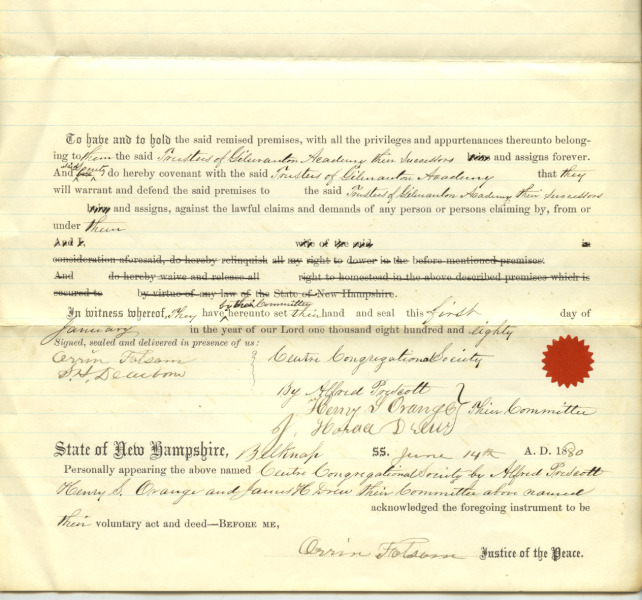 To have and to hold the said remised premises, with all the privileges and appurtenances thereunto belong-
ing to them the said Trustees of Gilmanton Academy their successors heirs and assigns forever.
And said grants do hereby covenant with the said Trustees of Gilmanton Academy that they
will warrant and defend the said premises to the said Trustees of Gilmanton Academy their successors
heirs and assigns, against the lawful claims and demands of any person or persons claiming by, from or
under them
And I, wife of the said in
consideration aforesaid, do hereby relinquish all my right to dower in the before-mentioned premises.
And do hereby waive and release all right to homestead in the above described premises which is
secured to by virtue of any law of the State of New Hampshire.
by their Committee
In witness whereof, They have hereunto set their hand and seal this first day of
January in the year of our Lord one thousand eight hundred and eighty
Signed, sealed and delivered in presence of us:
Orrin Folsom
S. H. Dearborn
Centre Congregational Society
By Alfred Prescott
Henry S Orange
J. H Drew
Their Committee
State of New Hampshire, Belknap SS. June 14th A. D. 1880
Personally appearing the above named Centre Congregational Society by Alfred Prescott
Henry S. Orange and James H. Drew their Committee above named
acknowledged the foregoing instrument to be
their voluntary act and deed—BEFORE ME,
Orrin Folsom Justice of the Peace.